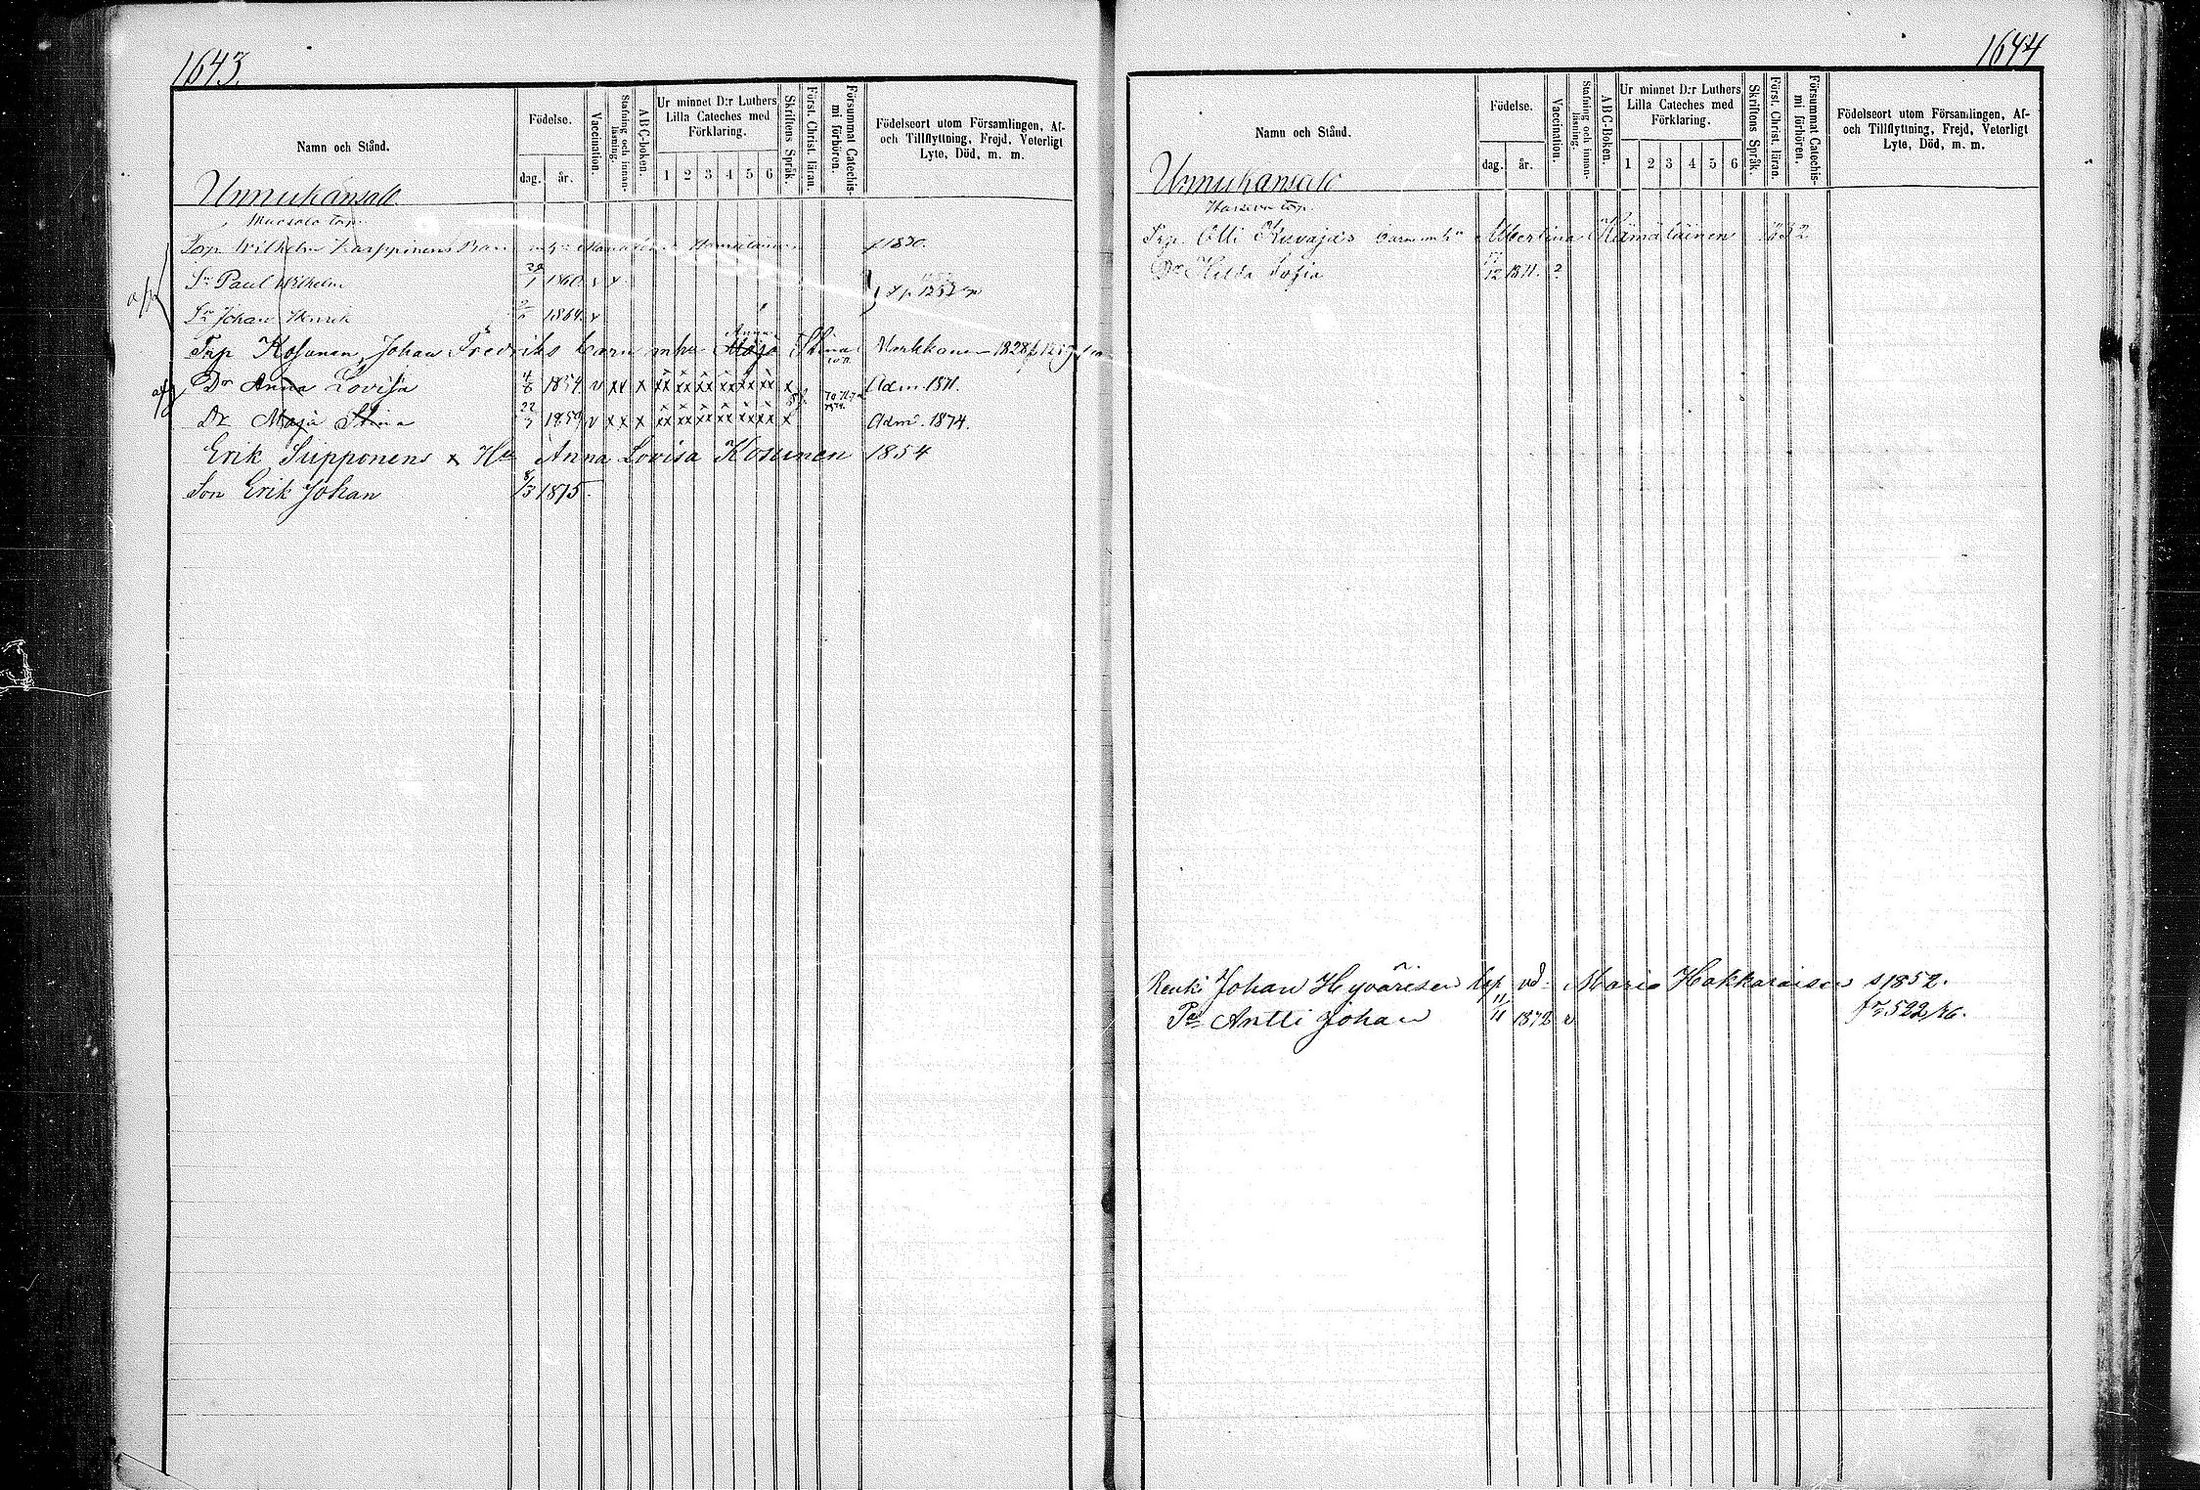 1643.
Namn och Stånd.
Födelse.
dag. år.
Vaccination.
Stafning och innanläsning.
ABC-boken.
Ur minnet D:r Luthers Lilla Cateches med Förklaring.
1 2 3 4 5 6
Skriftens Språk.
Först. Christ. läran.
Försummat Catechismi förhören.
Födelseort utom Församlingen, Af- och Tillflyttning, Frejd, Veterligt Lyte, Död, m. m.
Unnukansalo
torp.
Torp Wilhelm Karppinens Barn f 1830.
Sn Paul Wilhelm 1860 v x
Sn Johan Henrik 1864 v
Torp Kosunen, Johan Fredriks barn m hu Anna Maja Stina Markkanen 1828
Dr Anna Lovisa 4/8 1854. v xx x Adm. 1871.
Dr Maja Stina 22/3 1859 v xx x Adm. 1874.
Erik Siipponens x Hu Anna Lovisa Kosunen 1854
Son Erik Johan 8/3 1875.
1644
Namn och Stånd.
Födelse.
dag. år.
Vaccination.
Stafning och innanläsning.
ABC-Boken.
Ur minnet D:r Luthers Lilla Cateches med Förklaring.
1 2 3 4 5 6
Skriftens Språk.
Först. Christ. läran.
Försummat Catechismi förhören.
Födelseort utom Församlingen, Af- och Tillflyttning, Frejd, Veterligt Lyte, Död, m. m.
Unnukansalo
torp.
Torp. Olli Kuvajas barn m hu Albertina Hämäläinen 1832
Dr Hilda Sofia 17/12 1871. ?
Renki Johan Hyvärisen lap. vd. Maria Hakkaraisen s 1852.
Pa Antti Johan 11/11 1872 v fr 522/76.